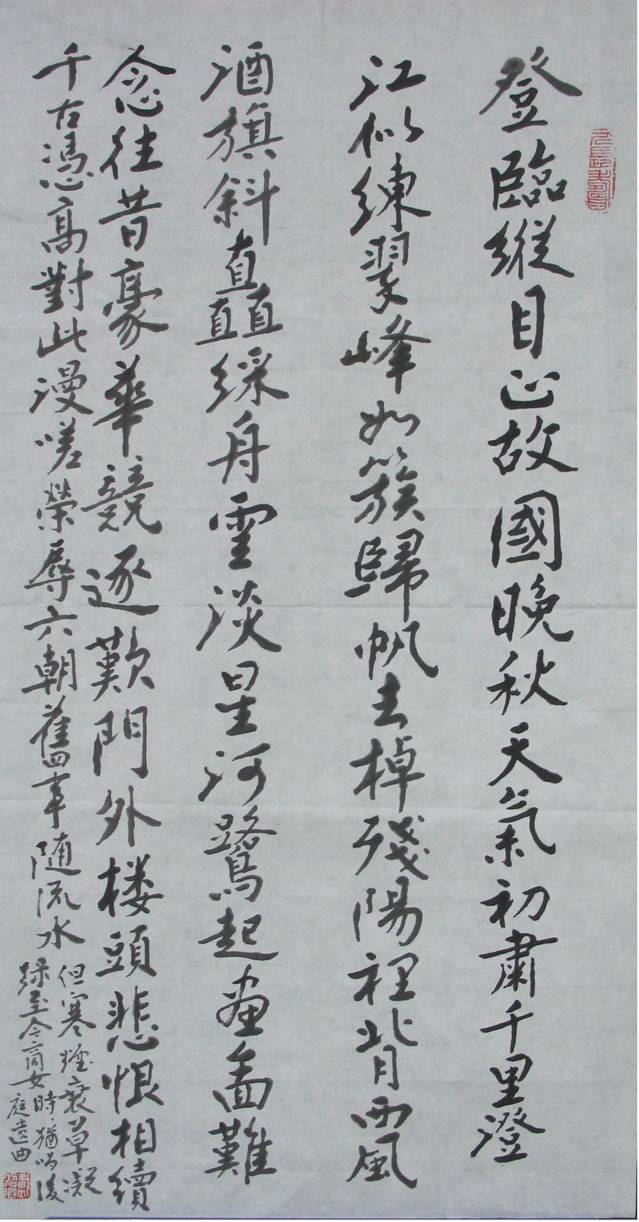 登臨縱目正故國晚秋天氣初肅千里澄
江似練翠峰如簇歸帆去棹殘陽裡背西風
酒旗斜矗綵舟雲淡星河鷺起畫圖難
念往昔豪華競逐歎門外楼頭悲恨相續
千古憑高對此漫嗟榮辱六朝舊事随流水
但寒煙衰草凝
緑至今商女
時〻猶唱後
庭遺曲